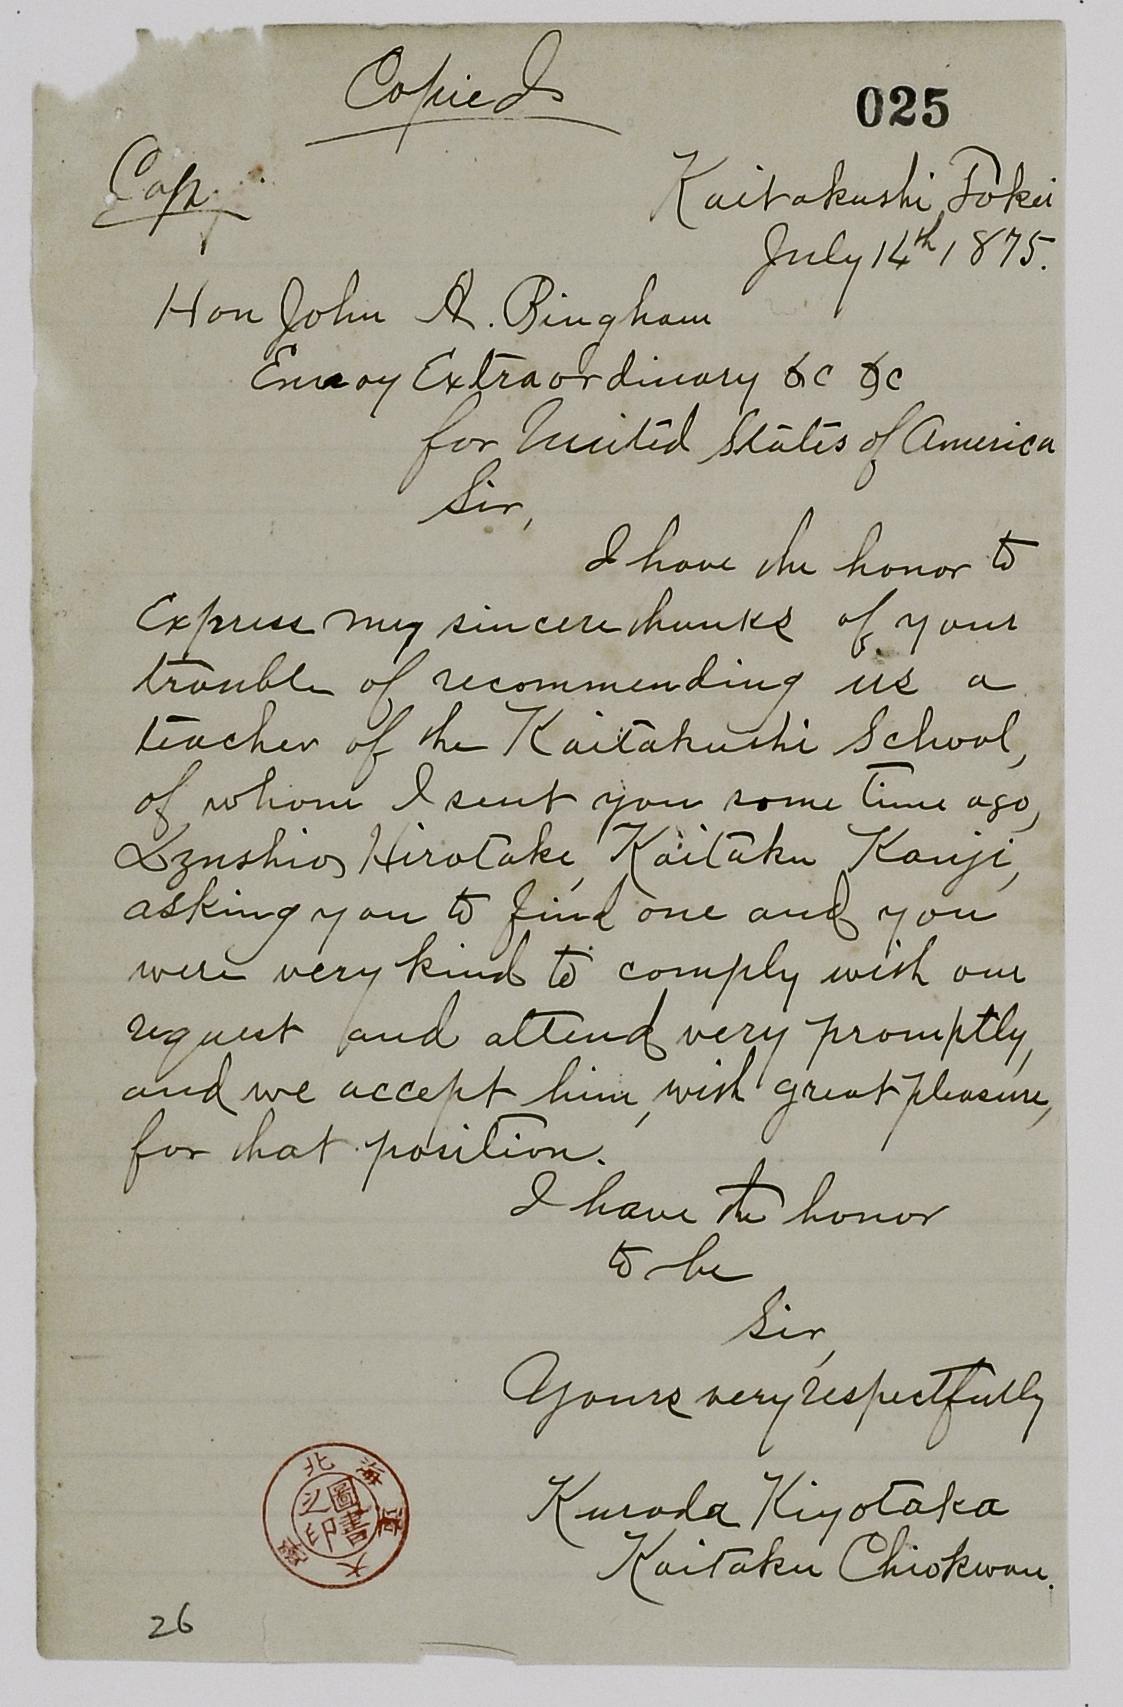 Copied
025
Copy
Kaitakushi, Tokei
July 14th, 1875.
Hon John A. Bingham
Envoy Extraordinary &c &c
for United States of America
Sir,
I have the honor to
Express my sincere thanks of your
trouble of recommending us a
teacher of the Kaitakushi School,
of whom I sent you some time ago,
Hirotake, Kaitaku Kanji,
asking you to find one and you
were very kind to comply with our
request and attend very promptly,
and we accept him, with great pleasure,
for that position.
I have the honor
to be
Sir,
Yours very respectfully
Kuroda Kiyotaka
Kaitaku Chiokwan.
北海道大學
圖書之印
26